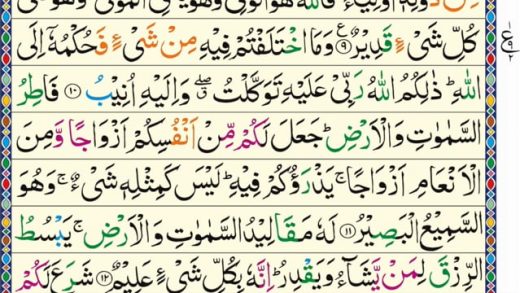 كُلِّ شَىْءٍ قَدِيْرٌ ﴿۹﴾ وَمَا اخْتَلَفْتُمْ فِيْهِ مِنْ شَىْءٍ فَحُكْمُهٗۤ اِلَى
اللّٰهِ ؕ ذٰلِكُمُ اللّٰهُ رَبِّىْ عَلَيْهِ تَوَكَّلْتُ ۖ وَاِلَيْهِ اُنِيْبُ ﴿۱۰﴾ فَاطِرُ
السَّمٰوٰتِ وَالْاَرْضِ ؕ جَعَلَ لَكُمْ مِّنْ اَنْفُسِكُمْ اَزْوَاجًا وَّمِنَ
الْاَنْعَامِ اَزْوَاجًا ۚ يَذْرَؤُكُمْ فِيْهِ ؕ لَيْسَ كَمِثْلِهٖ شَىْءٌ ۚ وَهُوَ
السَّمِيْعُ الْبَصِيْرُ ﴿۱۱﴾ لَهٗ مَقَالِيْدُ السَّمٰوٰتِ وَالْاَرْضِ ۚ يَبْسُطُ
الرِّزْقَ لِمَنْ يَّشَآءُ وَيَقْدِرُ ؕ اِنَّهٗ بِكُلِّ شَىْءٍ عَلِيْمٌ ﴿۱۲﴾ شَرَعَ لَكُمْ